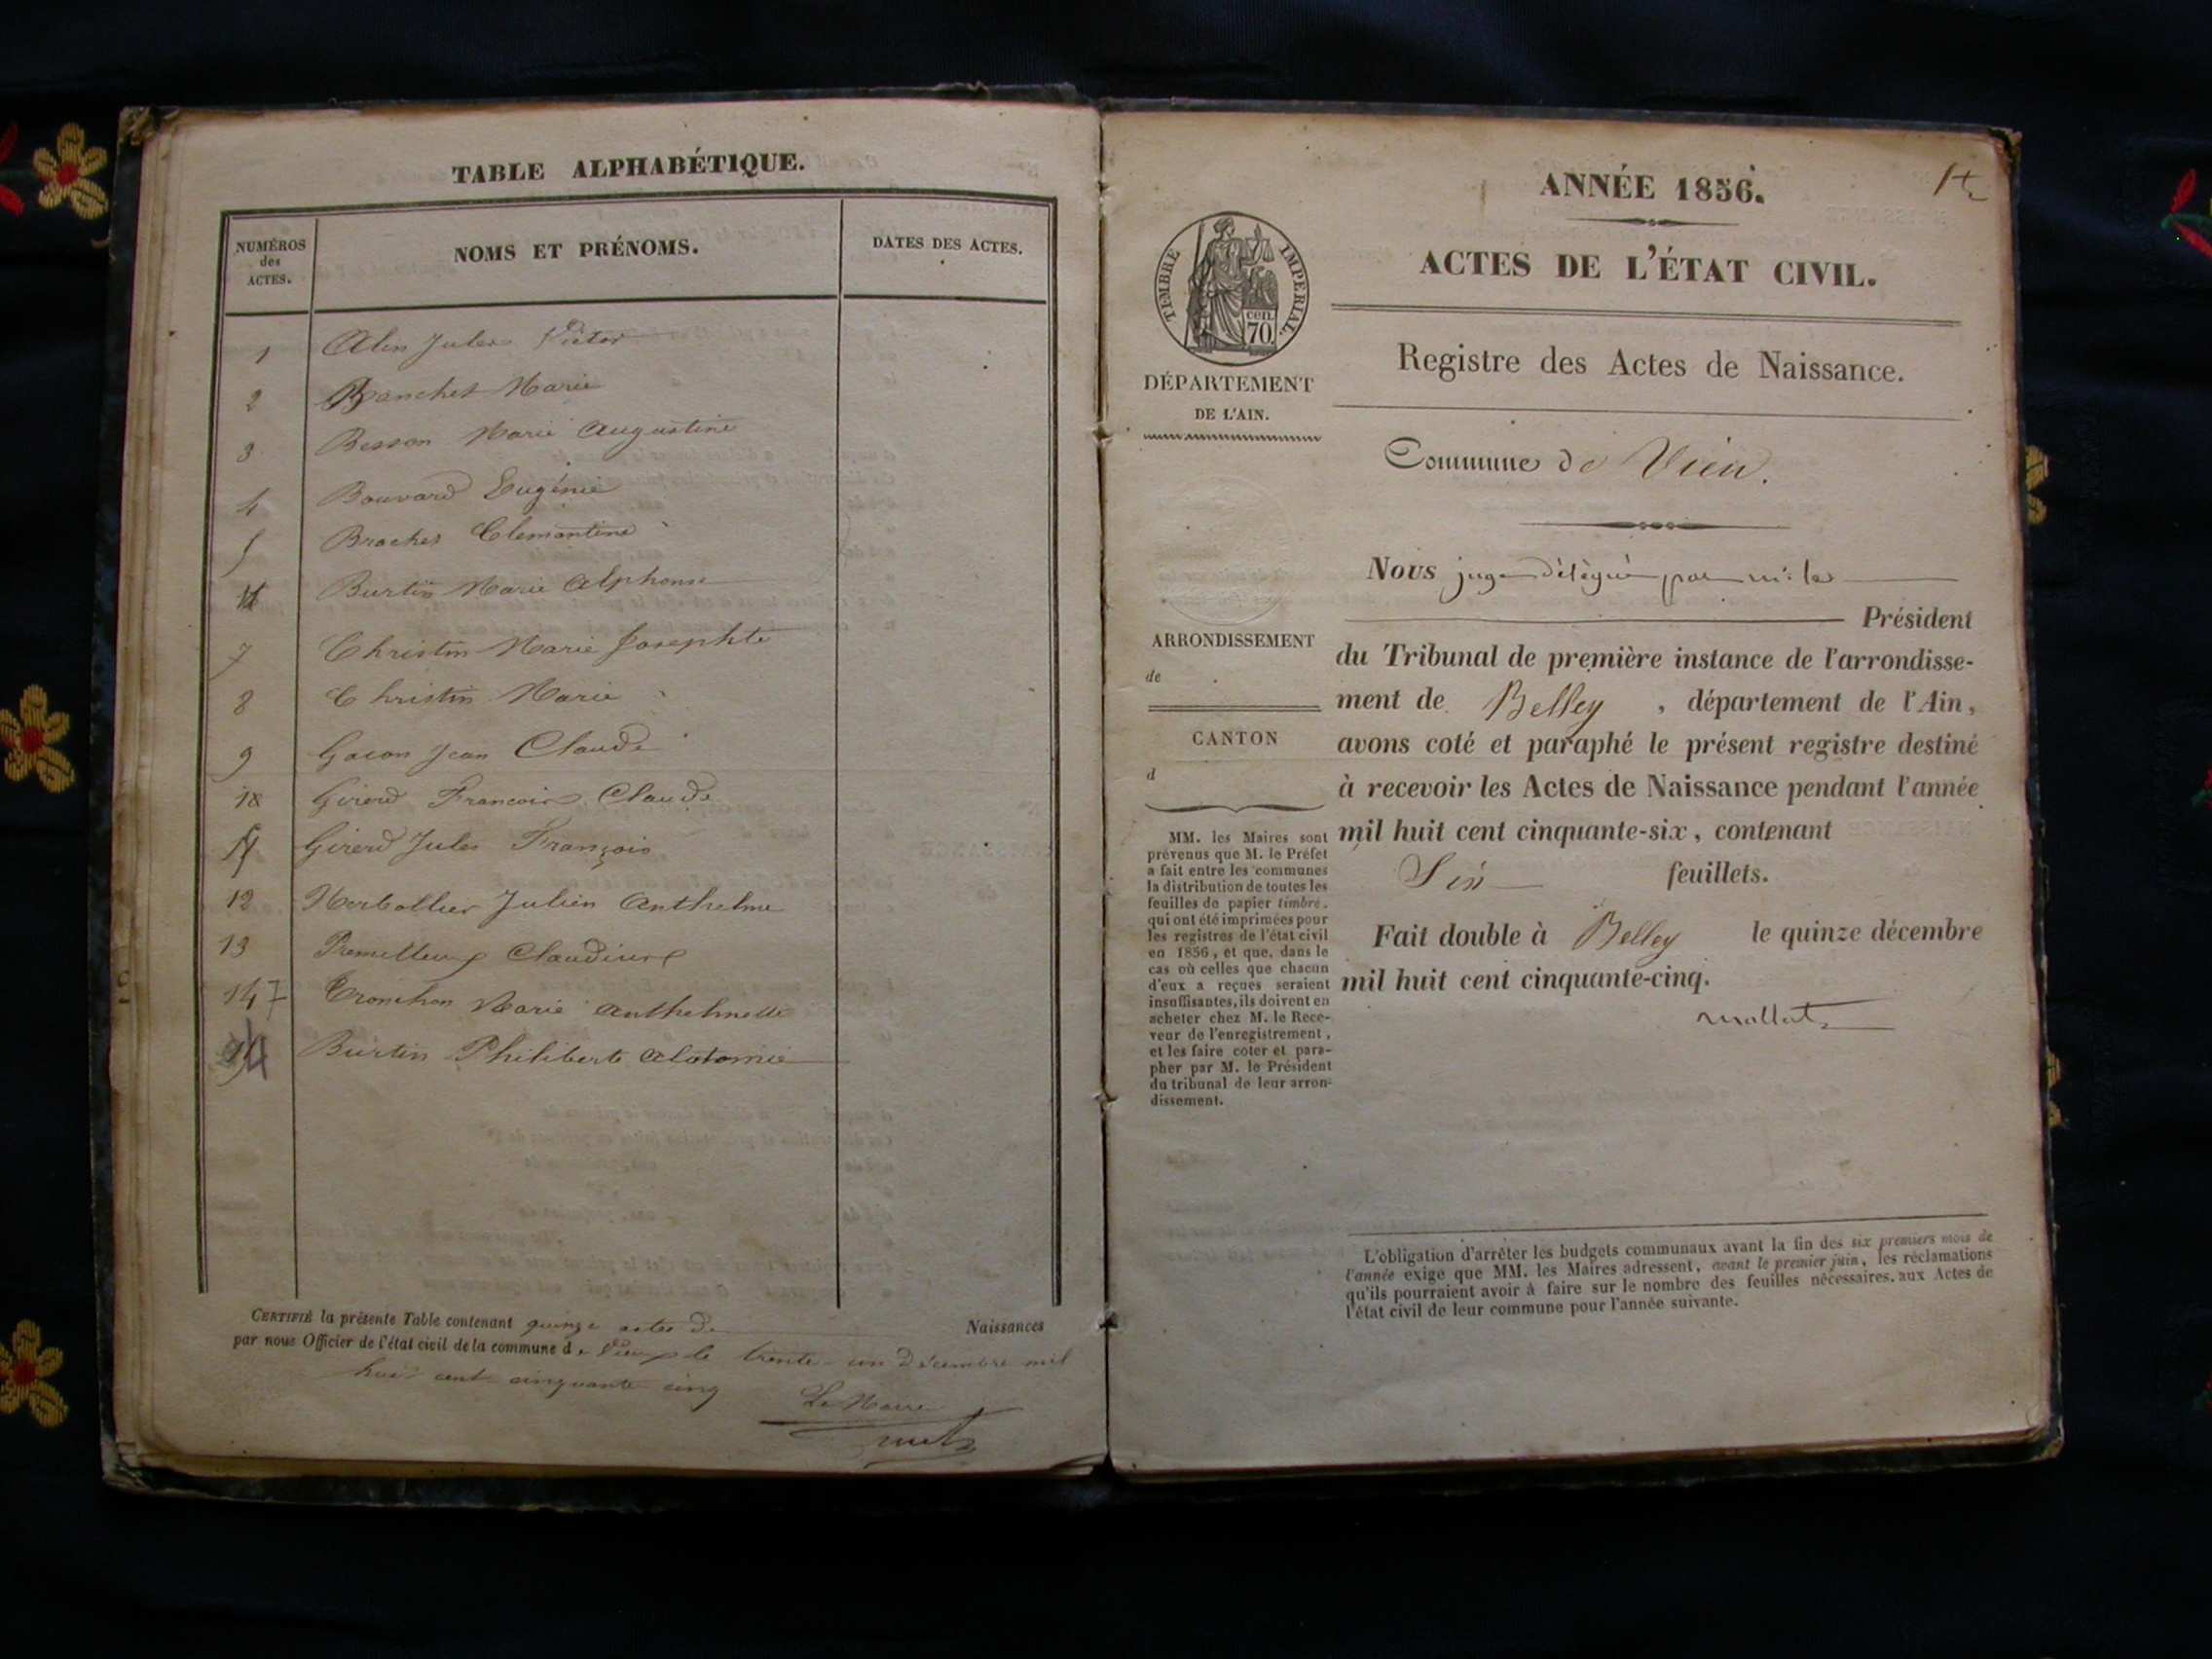 TABLE ALPHABÉTIQUE.
NUMÉROS des ACTES.
NOMS ET PRÉNOMS.
DATES DES ACTES.
1 Alin Jules Victor
2 Banchet Marie
3 Besson Marie Augustine
4 Bouvard Eugénie
5 Brachet Clemantine
Burtin Marie Alphonse
7 Christin Marie Josephte
8 Christin Marie
9 Gacon Jean Claude
Girerd Francois Claude
Girerd Jules François
12 Julien Anthelme
13 Claudius
14 Marie Anthelmette
Burtin Philiberte
CERTIFIÉ la présente Table contenant quinze actes de Naissances
par nous Officier de l'état civil de la commune de Vieu le trente-un Décembre mil
huit cent cinquante cinq
Le Maire
ANNÉE 1856.
ACTES DE L'ÉTAT CIVIL.
TIMBRE IMPERIAL.
70 cen.
Registre des Actes de Naissance.
DÉPARTEMENT
DE L'AIN.
Commune de Vieu.
Nous juge délégué par mr le
Président
ARRONDISSEMENT
de
CANTON
d
du Tribunal de première instance de l'arrondisse-
ment de Belley , département de l'Ain,
avons coté et paraphé le présent registre destiné
à recevoir les Actes de Naissance pendant l'année
mil huit cent cinquante-six, contenant
Six feuillets.
Fait double à Belley le quinze décembre
mil huit cent cinquante-cinq.
MM. les Maires sont
prévenus que M. le Préfet
a fait entre les communes
la distribution de toutes les
feuilles de papier timbré,
qui ont été imprimées pour
les registres de l'état civil
en 1856, et que, dans le
cas où celles que chacun
d'eux a reçues seraient
insuffisantes, ils doivent en
acheter chez M. le Rece-
veur de l'enregistrement,
et les faire coter et para-
pher par M. le Président
du tribunal de leur arron-
dissement.
L'obligation d'arrêter les budgets communaux avant la fin des six premiers mois de
l'année exige que MM. les Maires adressent, avant le premier juin, les réclamations
qu'ils pourraient avoir à faire sur le nombre des feuilles nécessaires aux Actes de
l'état civil de leur commune pour l'année suivante.